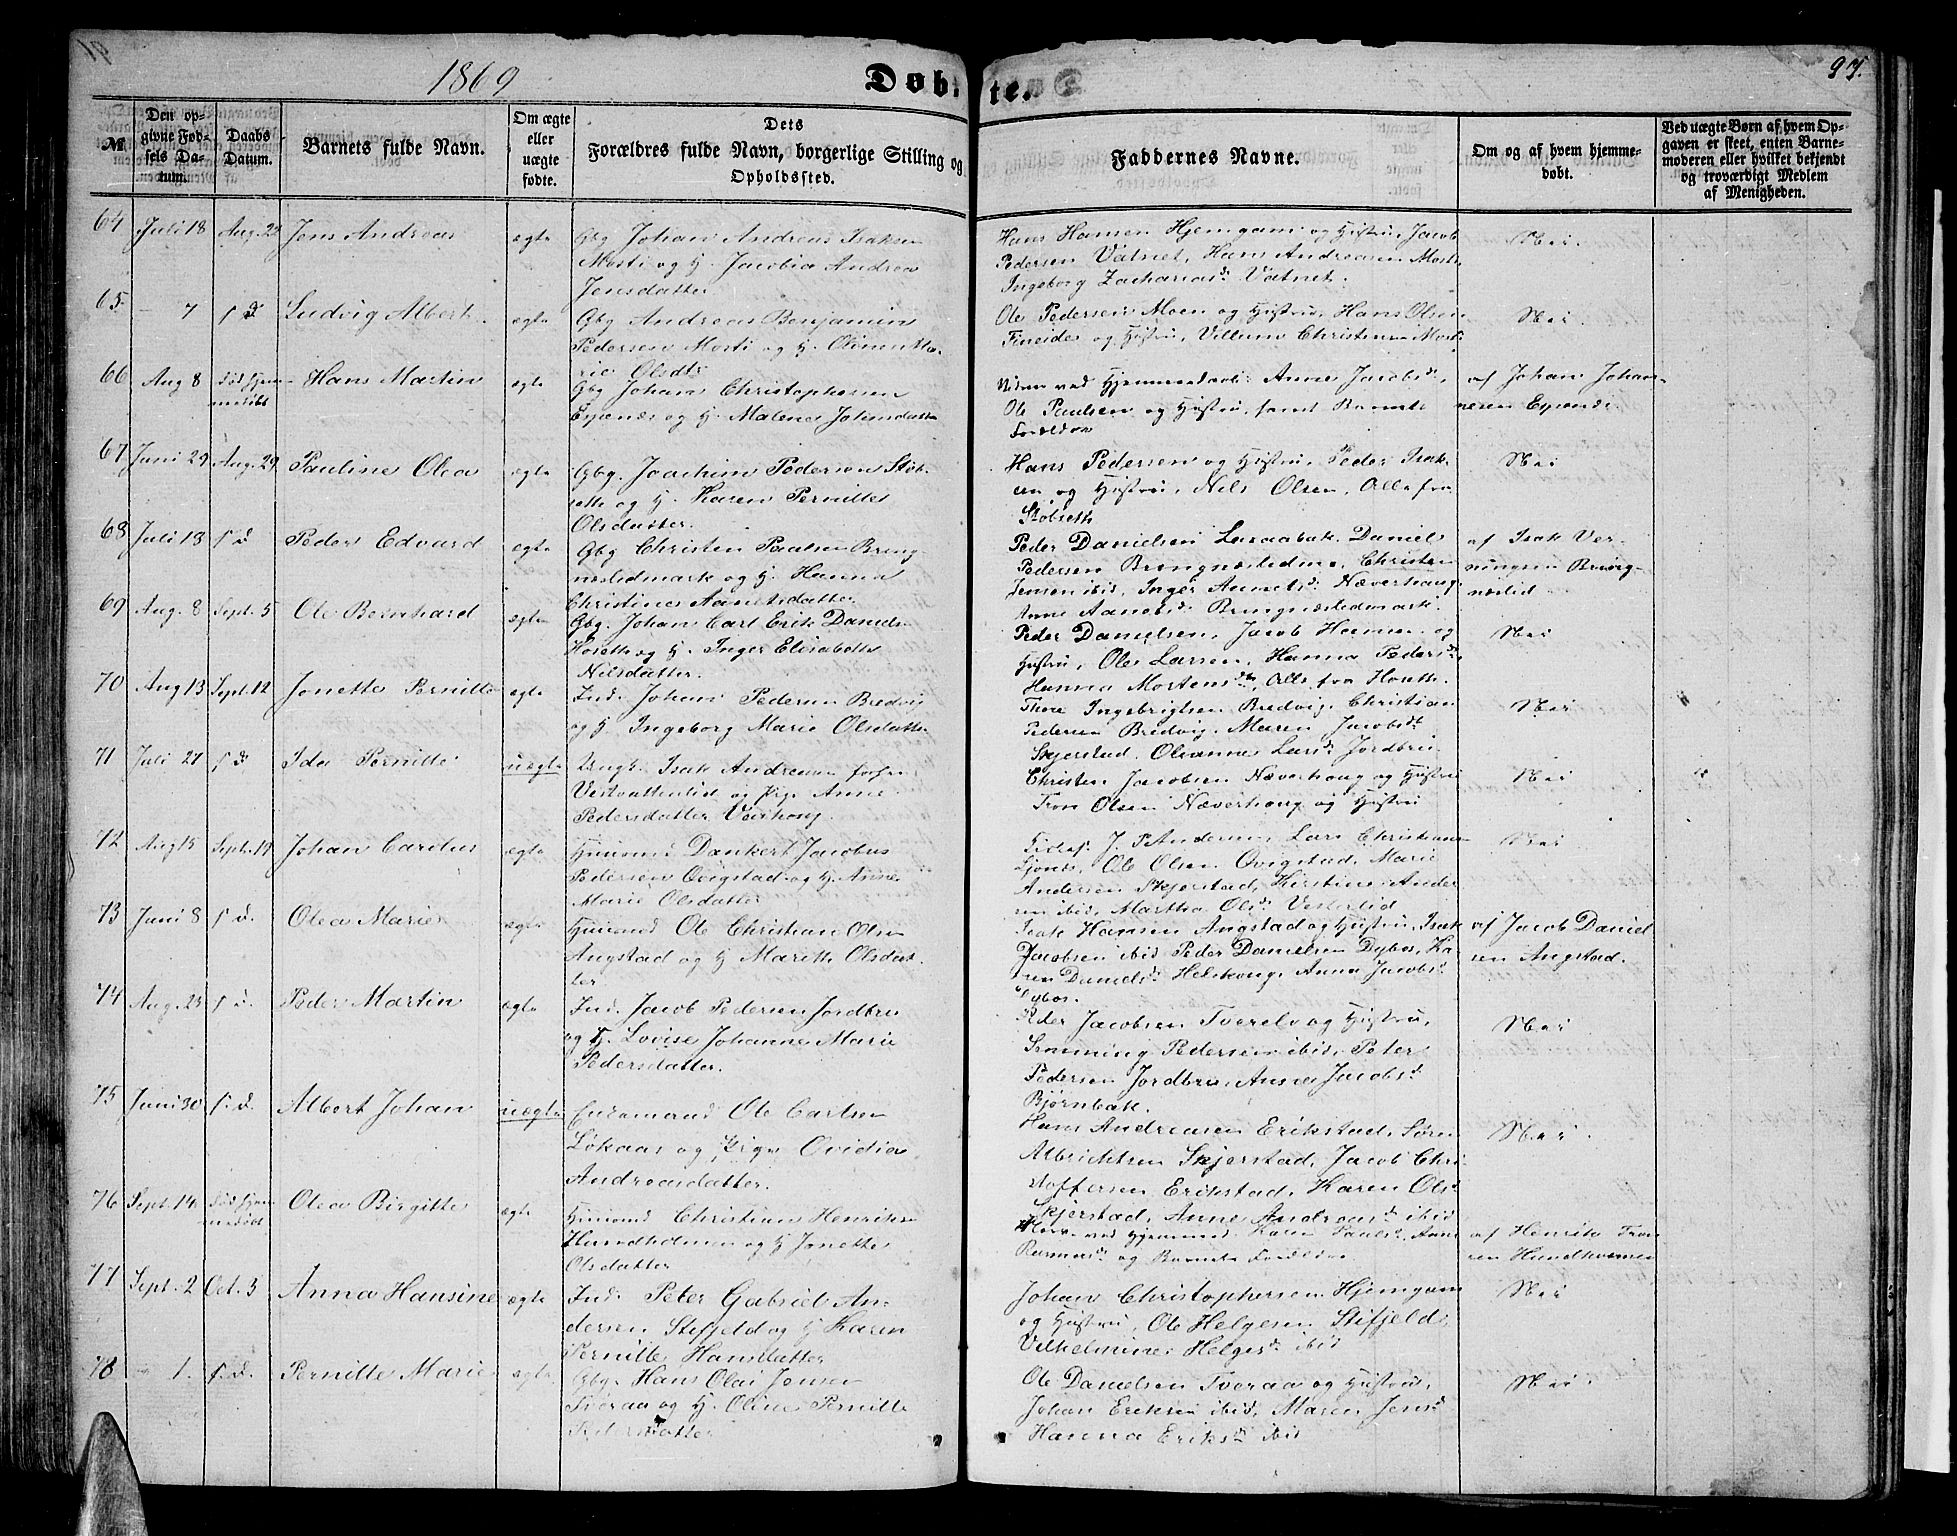 1869 Døbte. 97.
№ Den opgivne Fødsels Datum. Daabs Datum. Barnets fulde Navn. Om ægte eller uægte fødte. Dets Forældres fulde Navn, borgerlige Stilling og Opholdssted. Faddernes Navne. Om og af hvem hjemmedøbt. Ved uægte Børn af hvem Opgaven er skeet, enten Barnemoderen eller hvilket bekjendt og troværdigt Medlem af Menigheden.
64 Juli 18 Aug. 22 Jens Andreas ægte Gbg Johan Andreas Isaksen
Mosti og H. Jacobia Andrea
Jensdatter
Hans Hansen Hjemgam og Hustru, Jacob
Pedersen Vatnet, Hans Andreasen Mosti
Ingeborg Zachariasd. Vatnet.
Nei.
65. - 7 s D Ludvig Albert. ægte Gbg Andreas Benjamin
Pedersen Mosti og H. Olline Ma-
rie Olsdtr
Ole Pedersen Moen og Hustru, Hans Olsen
Fineidet og Hustru, Villum Christensen Mosti
Nei.
66 Aug 8 Død hjem-
medøbt Hans Martin ægte Gbg Johan Christophersen
Espenæs og H. Malene Johnsdatter
Vidne ved Hjemmedaab: Anne Jacobsd.,
Ole Paulsen og Hustru, samt Barnets
Forældre
af Johan Johan-
nesen
67 Juni 29 Aug. 29 Pauline Olea ægte Gbg. Joachim Pedersen Støb-
sette og H. Karen Pernille
Olsdatter.
Hans Pedersen og Hustru, Peder Isak-
sen og Hustru, Nils Olsen, Alle fra
Støbseth
Nei
68 Juli 13 s d Peder Edvard ægte Gbg Christen Paulsen Bring-
neslidmark og H. Hanna
Christine Aanetsdatter.
Peder Danielsen Laxaabak. Daniel
Pedersen Bringneslidm., Christen
Jensen ibid, Inger Aanetsd. Næverhaug,
Anne Aanetsd. Bringneslidmark.
af Isak Ver-
ningsen
neslid
69 Aug. 8 Sept. 5 Ole Bernhard ægte Gbg. Johan Carl Erik Daniels.
Hosette og H. Inger Elisabeth
Nilsdatter.
Peder Danielsen, Jacob Hansen og
Hustru, Ole Larsen, Hanna Pedersd.
Hanna Mortensd., Alle fra Hoseth.
Nei
70 Aug 13 Sept. 12 Jonette Pernille ægte Ind. Johan Pedersen Bredvig
og H Ingeborg Marie Olsdatter
Thore Ingebrigtsen Bredvig, Christian
Pedersen Bredvig, Maren Jacobsd.
Skjerstad, Oleanna Larsd. Jordbru
Nei
71 Juli 27 s d. Ida Pernille uægte Ungk. Isak Andreasen
Vestvatnslid og Pige Anne
Pedersdatter
Christen Jacobsen Næverhaug og Hustru
Tron Olsen Næverhaug og Hustru
Nei
72 Aug 15 Sept. 19 Johan Carelius ægte Huusmd Dankert Jacobus
Pedersen Øvigstad og H. Anne
Marie Olsdatter
J. P. Andersen, Lars Christians
Ljønes, Ole Olsen Øvigstad, Marie
Andersen Skjerstad, Kirstine Ander
sen ibid, Martha Olsd. Vesterlid
Nei
73 Juni 8 s d. Olea Marie ægte Huusmd Ole Christian Olsen
Angstad og H Marith Olsdat-
ter
Isak Hansen Angstad og Hustru, Isak
Jacobsen ibid Peder Danielsen Dybos, Ka-
ren Danielsd. Anna Jacobsd.
Dybos.
af Jacob Daniel
sen Angstad.
74 Aug. 25 s d. Peder Martin ægte Ind. Jacob Pedersen Jordbru
og H. Lovise Johanne Marie
Pedersdatter.
Peder Jacobsen Tverelv og Hustru,
Pedersen ibid, Peter
Pedersen Jordbru, Anne Jacobsd.
Bjørnbak.
Nei
75 Juni 30 s. d. Albert Johan uægte Enkemand Ole Carlsen
Løkaas og Pige Ovidia
Andreasdatter.
Hans Andreasen Erikstad, Søren
Albrichtsen Skjerstad, Jacob Chri-
stoffersen Erikstad, Karen Olsd.
Skjerstad, Anne Andreasd. ibid
Nei.
76 Sept. 14 Død hjem
medøbt Olea Birgitte ægte Huusmd Christian Henriks.
Hundholmen og H Jonette
Olsdatter
ved Hjemmed. Karen Paulsd., Anne
Rasmusd. og Barnets Forældre
af Henrik
Hundholmen
77 Sept. 2 Oct. 3 Anna Hansine ægte Ind. Peter Gabriel An-
dersen Stifjeld og H Karen
Pernille Hansdatter
Johan Christophersen Hjemgam
og Hustru, Ole Helgesen Stifjeld
Vilhelmine Helgesd. ibid
Nei
78 - 1. s. d. Pernille Marie ægte Gbg. Hans Olai Jensen
Tveraa og H. Oline Pernille
Pedersdatter
Ole Danielsen Tveraa og Hustru,
Johan Eriksen ibid, Maren Jensd.
Hanna Eriksd. ibid
Nei.